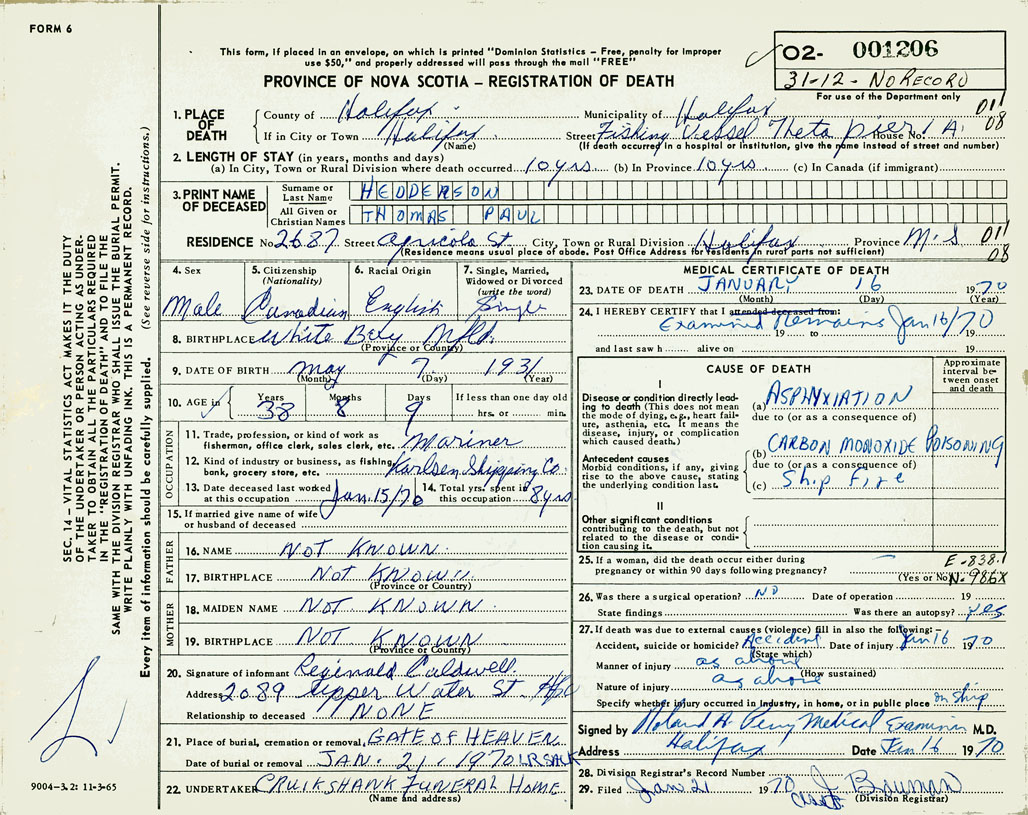 FORM 6
This form, if placed in an envelope, on which is printed "Dominion Statistics – Free, penalty for improper
use $50," and properly addressed will pass through the mail "FREE"
PROVINCE OF NOVA SCOTIA – REGISTRATION OF DEATH
02- 001206
31-12 - NO RECORD
For use of the Department only
1. PLACE OF DEATH
County of Halifax Municipality of Halifax 011
If in City or Town Halifax (Name) Street Fishing Vessel Theta pier 1 A House No. 08
(If death occurred in a hospital or institution, give the name instead of street and number)
2. LENGTH OF STAY (in years, months and days)
(a) In City, Town or Rural Division where death occurred 10 yrs. (b) In Province 10 yrs. (c) In Canada (if immigrant)
3. PRINT NAME OF DECEASED
Surname or Last Name HEDDERSON
All Given or Christian Names THOMAS PAUL
RESIDENCE No. 2687 Street Agricola St. City, Town or Rural Division Halifax Province N.S 011
(Residence means usual place of abode. Post Office Address for residents in rural parts not sufficient) 08
4. Sex Male
5. Citizenship (Nationality) Canadian
6. Racial Origin English
7. Single, Married, Widowed or Divorced (write the word) Single
8. BIRTHPLACE White Bay Nfld.
(Province or Country)
9. DATE OF BIRTH May 7, 1931
(Month) (Day) (Year)
10. AGE in Years 38 Months 8 Days 9 If less than one day old hrs. or min.
OCCUPATION
11. Trade, profession, or kind of work as
fisherman, office clerk, sales clerk, etc. Mariner
12. Kind of industry or business, as fishing,
bank, grocery store, etc. Karlsen Shipping Co
13. Date deceased last worked
at this occupation Jan. 15/70
14. Total yrs. spent in
this occupation 8 yrs
15. If married give name of wife
or husband of deceased
FATHER
16. NAME NOT KNOWN
17. BIRTHPLACE NOT KNOWN
(Province or Country)
MOTHER
18. MAIDEN NAME NOT KNOWN
19. BIRTHPLACE NOT KNOWN
(Province or Country)
20. Signature of informant Reginald Caldwell.
Address 2089 Upper Water St. Hfx
Relationship to deceased NONE
21. Place of burial, cremation or removal GATE OF HEAVEN
Date of burial or removal JAN. 21, 1970 LR SACK
22. UNDERTAKER CRUIKSHANK FUNERAL HOME
(Name and address)
MEDICAL CERTIFICATE OF DEATH
23. DATE OF DEATH JANUARY 16 1970
(Month) (Day) (Year)
24. I HEREBY CERTIFY that I attended deceased from:
Examined Remains Jan 16/70
19 to 19
and last saw h alive on 19
CAUSE OF DEATH
Approximate interval between onset and death
I
Disease or condition directly leading to death (This does not mean the mode of dying, e.g., heart failure, asthenia, etc. It means the disease, injury, or complication which caused death.)
(a) ASPHYXIATION
due to (or as a consequence of)
Antecedent causes
Morbid conditions, if any, giving rise to the above cause, stating the underlying condition last.
(b) CARBON MONOXIDE POISONING
due to (or as a consequence of)
(c) Ship Fire
II
Other significant conditions
contributing to the death, but not related to the disease or condition causing it.
25. If a woman, did the death occur either during E-838.1
pregnancy or within 90 days following pregnancy? (Yes or No) N-986X
26. Was there a surgical operation? NO Date of operation 19
State findings Was there an autopsy? yes
27. If death was due to external causes (violence) fill in also the following:
Accident, suicide or homicide? Accident Date of injury Jan 16 1970
(State which)
Manner of injury as above
(How sustained)
Nature of injury as above
Specify whether injury occurred in industry, in home, or in public place on ship
Signed by Roland H. Perry Medical Examiner M.D.
Address Halifax Date Jan 16 1970
28. Division Registrar's Record Number
29. Filed Jan 21 1970 J. Bauman
(Division Registrar)
SEC. 14 – VITAL STATISTICS ACT MAKES IT THE DUTY
OF THE UNDERTAKER OR PERSON ACTING AS UNDERTAKER
TO OBTAIN ALL THE PARTICULARS REQUIRED
IN THE "REGISTRATION OF DEATH" AND TO FILE THE
SAME WITH THE DIVISION REGISTRAR WHO SHALL ISSUE THE BURIAL PERMIT.
WRITE PLAINLY WITH UNFADING INK. THIS IS A PERMANENT RECORD.
Every item of information should be carefully supplied. (See reverse side for instructions.)
9004-3.2: 11-3-65